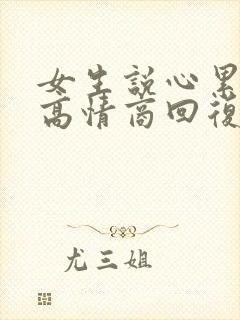 女生説心累
高情商回復
尤三姐